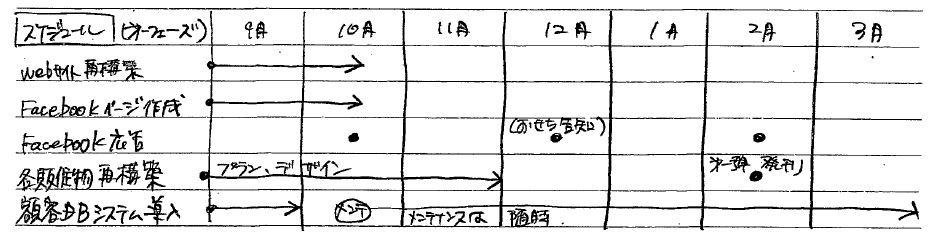 スケジュール (オーフェーズ) 9月 10月 11月 12月 1月 2月 3月
webサイト再構築
Facebookページ作成
Facebook広告 (おせち告知)
各販促物再構築 プラン、デザイン 第一弾 発刊
顧客DBシステム導入 メンテ メンテナンスは 随時